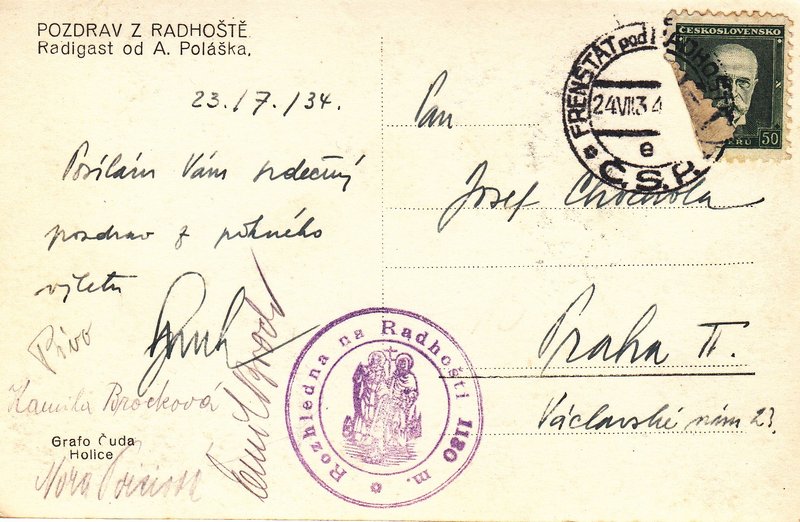 POZDRAV Z RADHOŠTĚ
Radigast od A. Poláška.
23./7./34.
Posílám Vám srdečný
pozdrav z pěkného
výletu
Pivo
Kamila Bročková
Grafo Čuda
Holice
Nora
Rozhledna na Radhošti 1180 m.
ČESKOSLOVENSKO
50
FRENŠTÁT pod RADHOŠTĚM
24.VII.34
e
Č.S.P.
Pan
Josef Chochola
Praha II.
Václavské nám 23.